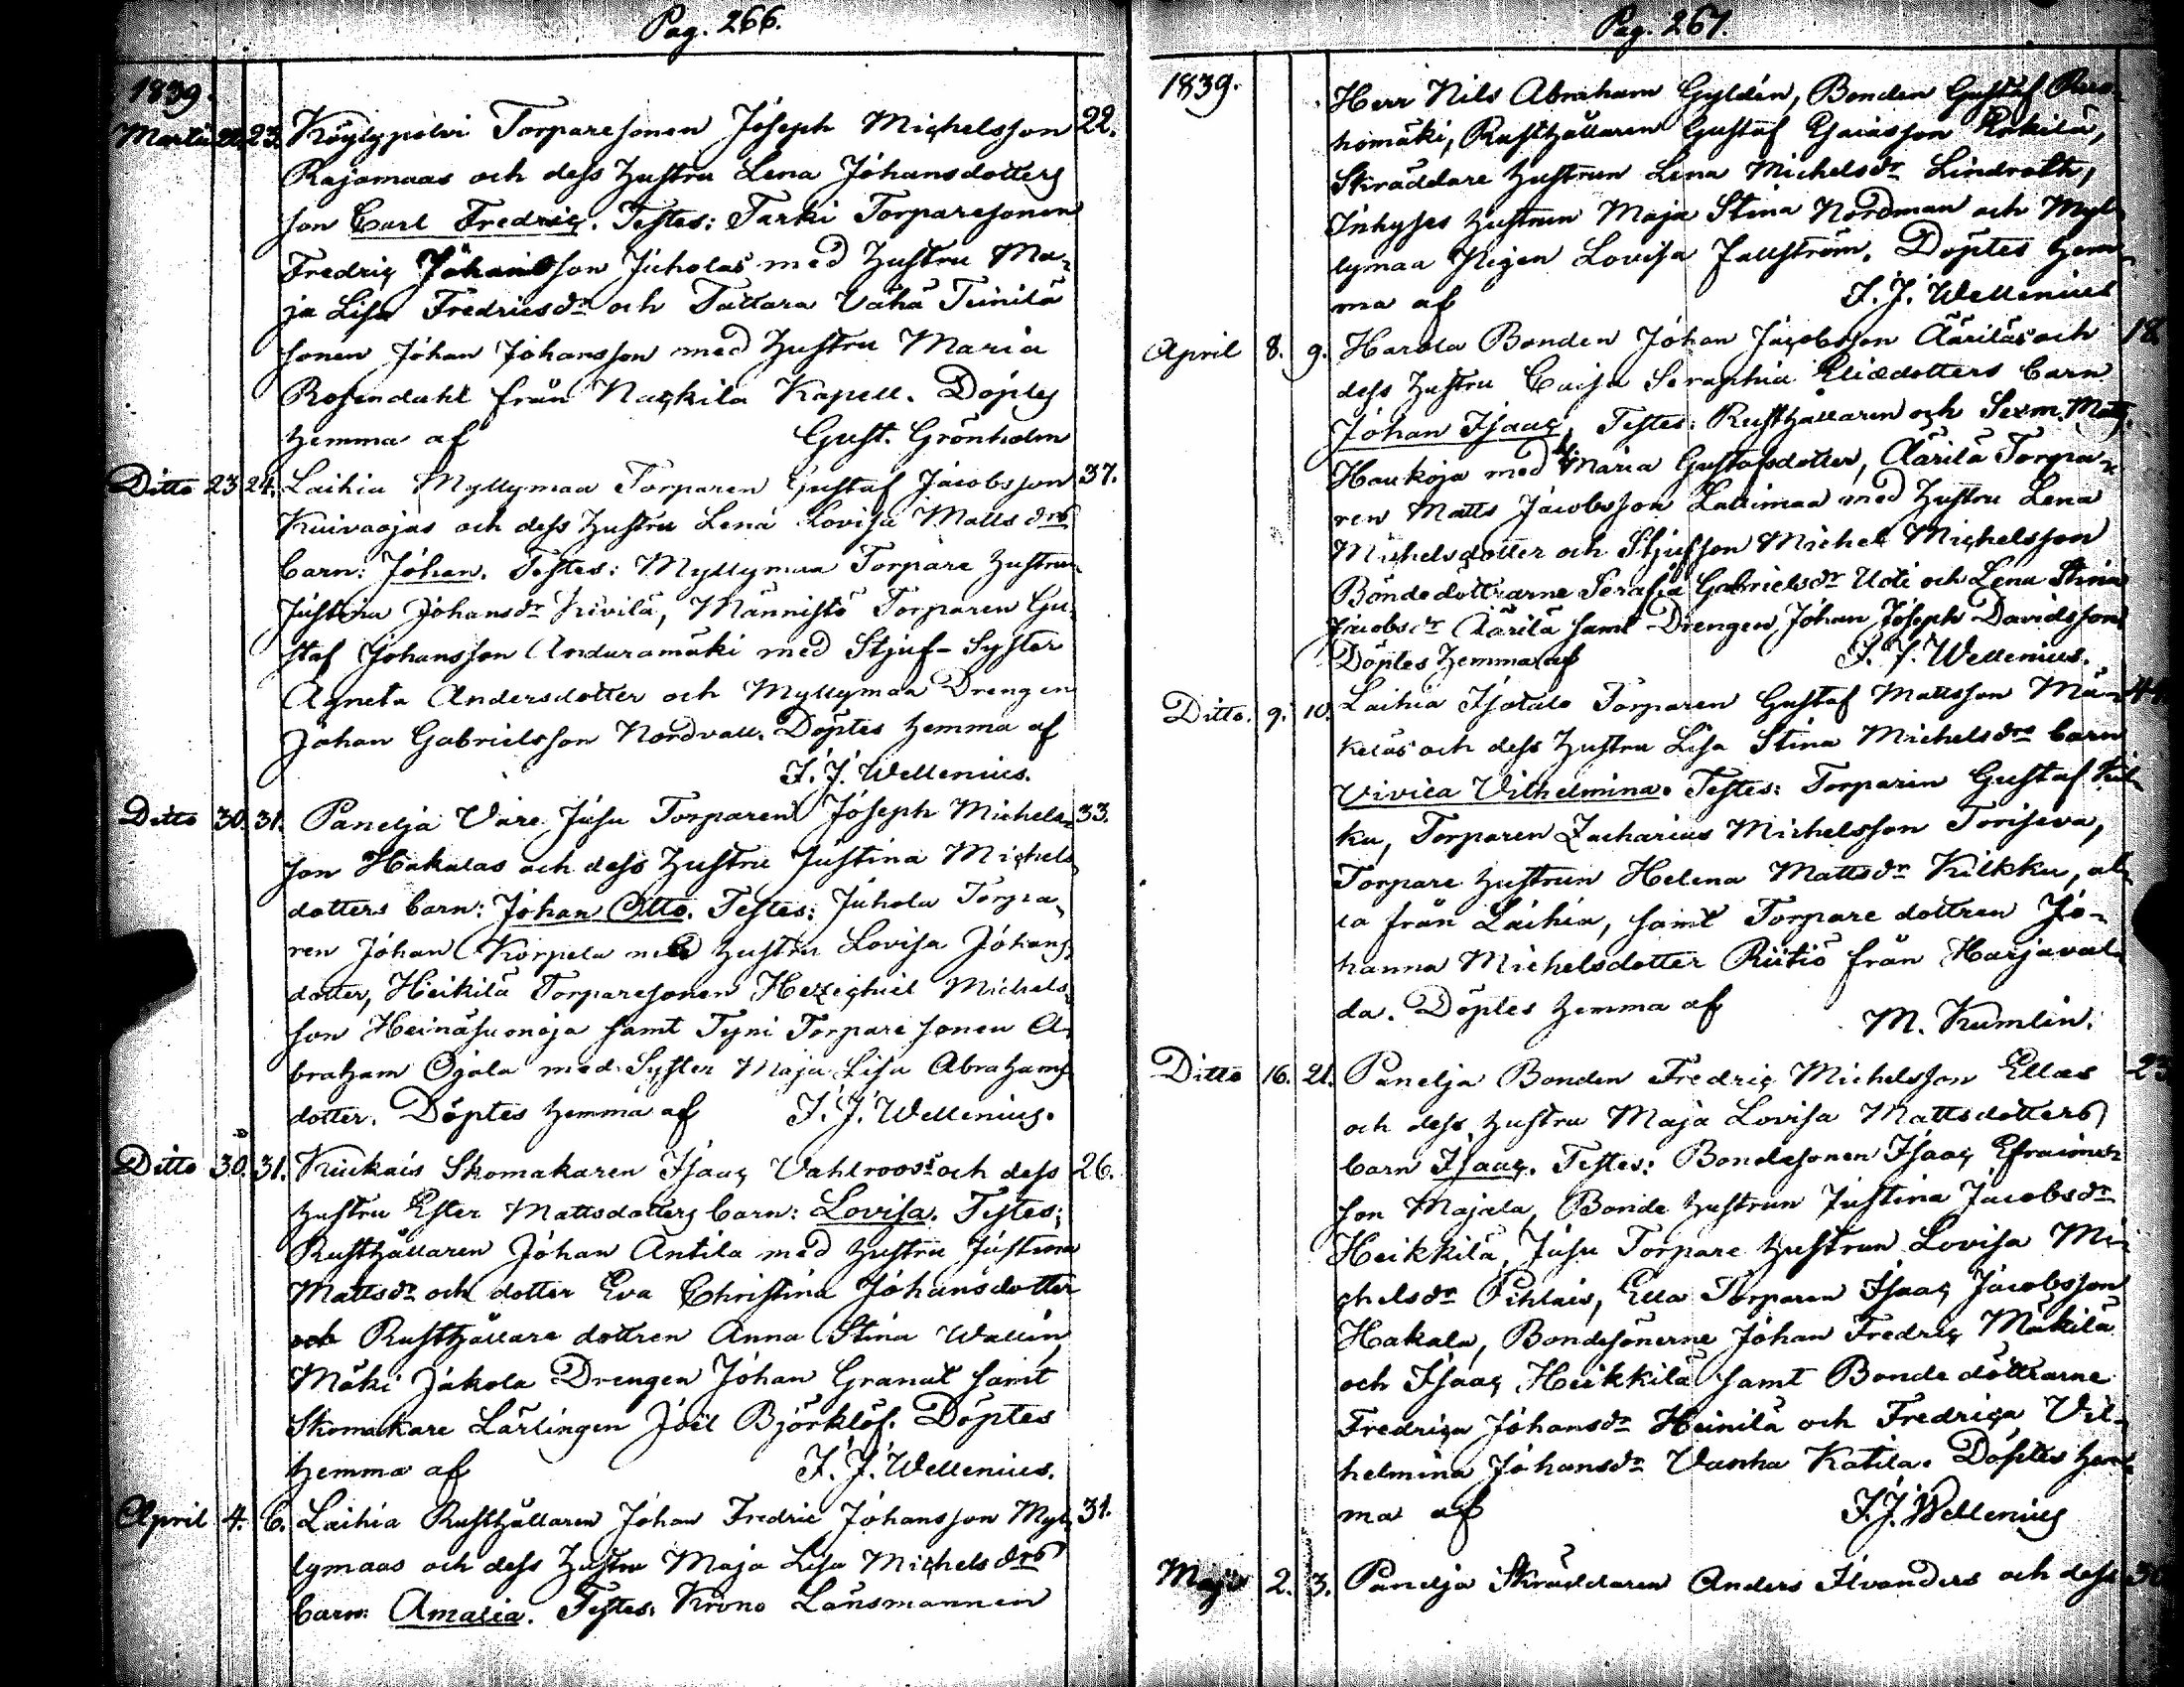 Pag. 266.
1839.
Martii 22. 23. Köylypolvi Torparesonen Joseph Michelsson 22.
Rajamaas och dess hustru Lena Johansdotters
son Carl Fredric. Testes: Tarki Torparesonen
Fredric Johansson Juholas med hustru Ma-
ja Lisa Fredricsdr och Tattara Vähä Teinilä
sonen Johan Johansson med hustru Maria
Rosendahl från Nackila Kapell. Döptes
hemma af Gust. Grönholm
Ditto 23 24. Laihia Myllymaa Torparen Gustaf Jacobsson 37.
Kuivaojas och dess hustru Lena Lovisa Mattsdrs
barn: Johan. Testes: Myllymaa Torpare hustrun
Justina Johansdr Kivilä, Männistö Torparen Gu-
staf Johansson Anduramäki med Stjuf-Syster
Agneta Andersdotter och Myllymaa Drengen
Johan Gabrielsson Nordvall. Döptes hemma af
I. J. Wellenius.
Ditto 30. 31. Panelja Vare Jusu Torparen Joseph Michels- 33.
son Hakalas och dess hustru Justina Michels
dotters barn: Johan Otto. Testes: Juhola Torpa-
ren Johan Korpela med hustru Lovisa Johans
dotter, Heikilä Torparesonen Hezechiel Michels-
son Heinäsuonoja samt Tyni Torpare sonen A-
braham Ojala med Syster Maja Lisa Abrahams
dotter. Döptes hemma af I. J. Wellenius.
Ditto 30. 31. Kiukais Skomakaren Isaac Vahlroos's och dess 26.
hustru Ester Mattsdotters barn: Lovisa. Testes:
Rusthållaren Johan Antila med hustru Justina
Mattsdr och dotter Eva Christina Johansdotter
och Rusthållare dottren Anna Stina Wallin,
Mäki Jakola Drengen Johan Granat samt
Skomakare Lärlingen Joël Björklöf. Döptes
hemma af I. J. Wellenius.
April 4. 6. Laihia Rusthållaren Johan Fredric Johansson Myl- 31.
lymaas och dess hustru Maja Lisa Michelsdrs
barn: Amalia. Testes: Krono Länsmannen
Pag. 267.
1839.
Herr Nils Abraham Gyldén, Bonden Gustaf
homäki, Rusthållaren Gustaf Esaiasson
Skräddare hustrun Lena Michelsdr Lindroth,
Inhyses hustrun Maja Stina Nordman och Myl-
lymaa Pigen Lovisa Fallström. Döptes hem-
ma af I. J. Wellenius
April 8. 9. Harola Bonden Johan Jacobsson Ääriläs och 18.
dess hustru Caisa Seraphia Eliædotters barn
Johan Isaac, Testes: Rusthållaren och Sexm. Matts
Haukoja med Maria Gustafsdotter, Äärilä Torpa-
ren Matts Jacobsson Lattimaa med hustru Lena
Michelsdotter och Stjufson Michel Michelsson
Bondedottrarne Serafia Gabrielsdr Uoti och Lena Stina
Jacobsdr Äärilä samt Drengen Johan Joseph Davidsson.
Döptes hemma af I. J. Wellenius.
Ditto. 9. 10. Laihia Isotalo Torparen Gustaf Mattsson Män- 44.
keläs och dess hustru Lisa Stina Michelsdrs barn
Vivica Vilhelmina. Testes: Torparen Gustaf Kil-
ku, Torparen Zacharias Michelsson Toriseva,
Torpare hustrun Helena Mattsdr Kilkku, al-
la från Laihia, samt Torpare dottren Jo-
hanna Michelsdotter Riitiö från Harjaval-
da. Döptes hemma af M. Kumlin.
Ditto 16. 21. Panelja Bonden Fredric Michelsson Ellas 23
och dess hustru Maja Lovisa Mattsdotters
barn Isaac. Testes: Bondesonen Isaac Efraims-
son Majala, Bonde hustrun Justina Jacobsdr
Heikkilä, Jusu Torpare hustrun Lovisa Mi-
chelsdr Pihlais, Ella Torparen Isaac Jacobsson
Hakala, Bondesönerne Johan Fredric Mäkilä
och Isaac Heikkilä samt Bonde döttrarne
Fredrica Johansdr Heinilä och Fredrica Vil-
helmina Johansdr Vanha Katila. Döptes hem-
ma af I. J. Wellenius
Maji 2. 3. Panelja Skräddaren Anders Ilvanders och dess